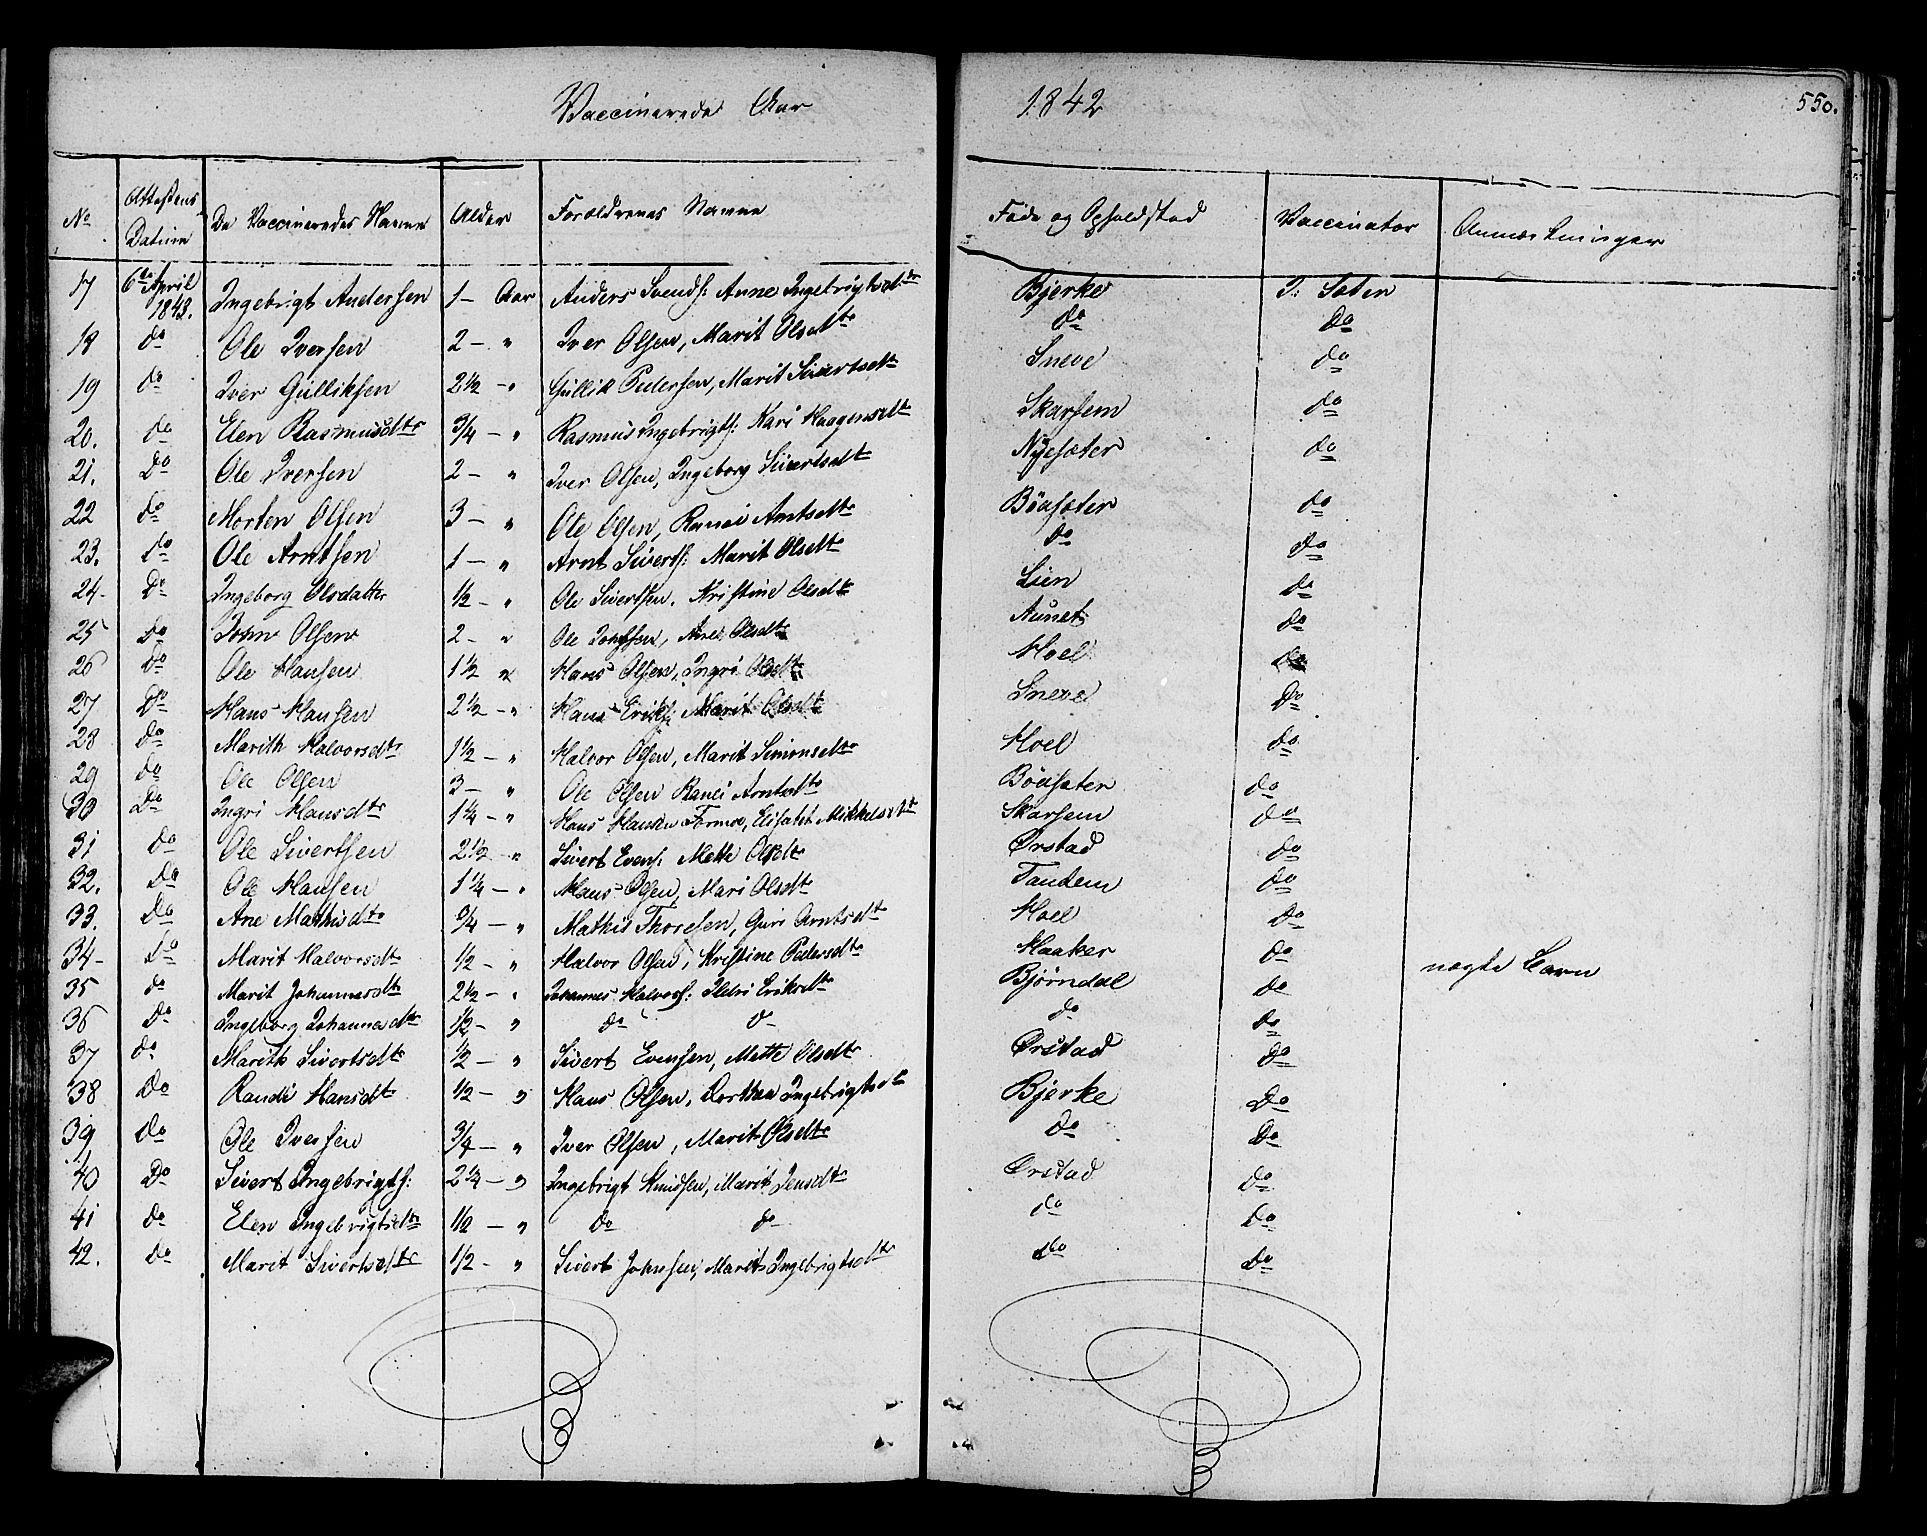 Vaccinerede Aar 1842 550.
No Attestens Datum De Vaccineredes Navne Alder Forældrenes Navne Føde og Opholdsted Vaccinator Anmærkninger
17 6te April 1843. Ingebrigt Andersen 1 - Aar Anders Svends: Anne Ingebrigtsdtr Bjerke J: Sæten
18 do Ole Iversen 2 - " Iver Olsen, Marit Olsdtr do do
19 do Iver Gulliksen 2 1/2 - " Gullik Pedersen, Marit Sivertsdtr Sneve do
20. do Elen Rasmusdtr 3/4 - " Rasmus Ingebrigts: Kari Haagensdtr Skarsem do
21. Do Ole Iversen 2 - " Iver Olsen, Ingeborg Sivertsdtr Nyesæter do
22 do Morten Olsen 3 - " Ole Olsen, Ranei Arntsdtr Böasæter do
23. Do Ole Arntsen 1 - " Arnt Siverts: Marit Olsdtr do do
24 - Do Ingeborg Olsdatter 1/2 - " Ole Sivertsen. Kristine Olsdtr Lien do
25 Do John Olsen 2 - " Ole Johnsen, Ane Olsdtr Aunet do
26 Do Ole Hansen 1 1/2 " Hans Olsen, Ingri Olsdtr Hoel do
27 Do Hans Hansen 2 1/2 - " Hans Eriks: Marit Olsdtr Sneve Do
28 do Marith Halvorsdtr 1 1/2 - " Halvor Olsen, Marit Simonsdtr Hoel do
29 do Ole Olsen 3 - " Ole Olsen Ranei Arntsdtr Böasæter do
30 Do Ingri Hansdtr 1 1/4 - " Hans Hansen Formo, Elisabet Mikkelsdtr Skarsem do
31 do Ole Sivertsen 2 1/2 - " Sivert Evens: Mette Olsdtr Ørstad do
32. Do Ole Hansen 1 1/4 - " Hans Olsen, Mari Olsdtr Tandem do
33. Do Ane Mathisdtr 3/4 - " Mathis Thoresen, Guri Arntsdtr Hoel Do
34 - Do Marit Halvorsdtr 1/2 - " Halvor Olsen, Kristine Pedersdtr Haaker do nægte Barn
35 do Marit Johannesdtr 2 1/2 - " Johannes Halvors: Ildri Eriksdtr Bjørndal do
36 Do Ingeborg Johannesdtr 1/2 - " do do do do
37 do Marith Sivertsdtr 1/2 - " Sivert Evensen, Mette Olsdtr Ørstad do
38 Do Randi Hansdtr 1/2 - " Hans Olsen, Dorthea Ingebrigtsdtr Bjerke Do
39 Do Ole Iversen 3/4 - " Iver Olsen, Marit Olsdtr do Do
40 Do Sivert Ingebrigts: 2 1/4 - " Ingebrigt Knudsen, Marit Jensdtr Ørstad do
41 do Elen Ingebrigtsdtr 1/2 - " do do do do
42. do Marit Sivertsdtr 1/2 - " Sivert Johnsen, Marit Ingebrigtsdtr do Do